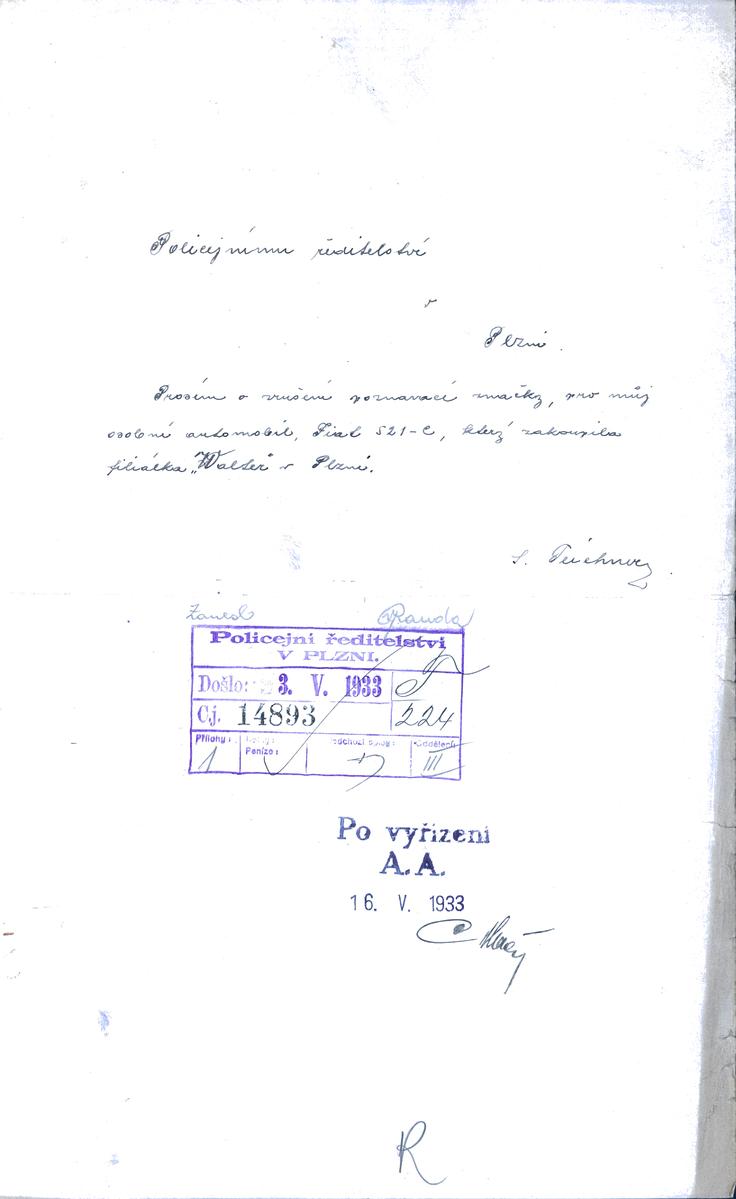 Policejnímu ředitelství
v
Plzni.
Prosím o zrušení poznavací značky, pro můj
osobní automobil, Fiat 521-C, který zakoupila
filiálka „Walter" v Plzni.
Zanesl Randa
Policejní ředitelství
V PLZNI.
Došlo: 3. V. 1933
Čj. 14893 224
Přílohy: Peníze: Oddělení:
1 III
Po vyřízení
A.A.
16. V. 1933
R